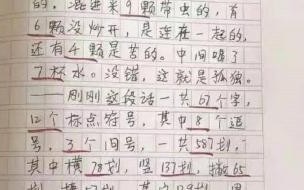 的，混进来9颗带虫的，有
6颗没炒开，是连在一起的，
还有4颗是苦的。中间喝了
7杯水。没错，这就是孤独。
——刚刚这段话一共67个字，
12个标点符号，其中8个逗
号，3个句号，一共587划，
其中横78划，竖137划，撇65